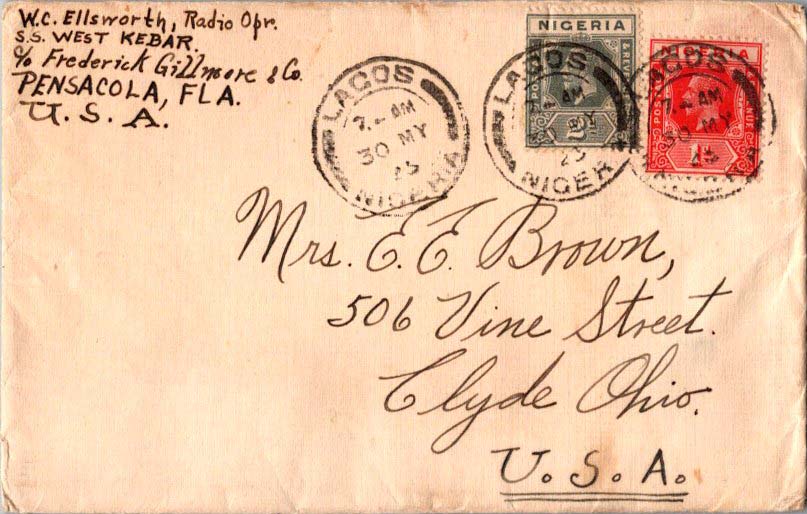 W.C. Ellsworth, Radio Opr.
S.S. WEST KEBAR.
c/o Frederick Gillmore & Co.
PENSACOLA, FLA.
U.S.A.
LAGOS
7-AM
30 MY
25
NIGERIA
NIGERIA
LAGOS
7-AM
MY
25
NIGER
POSTAGE
LAGOS
7-AM
30 MY
25
Mrs. E. E. Brown,
506 Vine Street.
Clyde Ohio.
U.S.A.